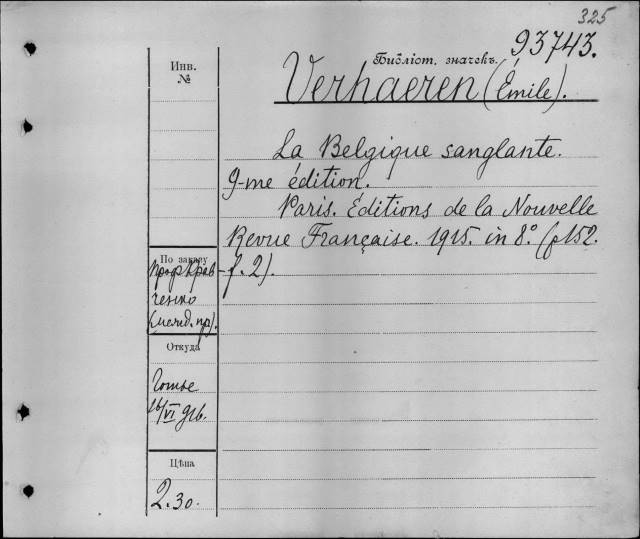 325
93743.
Библіот. значекъ.
Инв.
№
Verhaeren (Émile).
La Belgique sanglante.
9-me édition.
Paris. Éditions de la Nouvelle
Revue Française. 1915. in 8.° (p 152.
f. 2).
По заказу
Проф Крав-
ченко
Откуда
16/VI 916.
Цѣна
2.30.